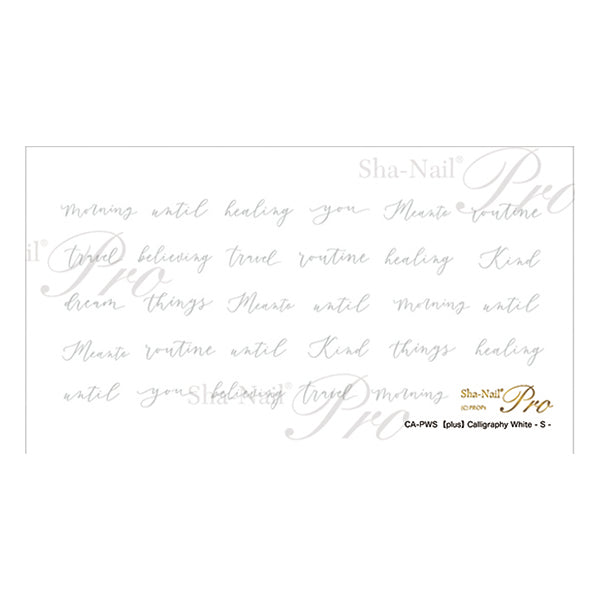 Sha-Nail® Pro
morning until healing you Meante routine
il® Pro
travel believing travel routine healing Kind
dream things Meante until morning until
Meante routine until Kind things healing
until you believing travel morning
Sha-Nail® Pro
Sha-Nail® Pro
(C) PROPs
CA-PWS 【plus】 Calligraphy White - S -